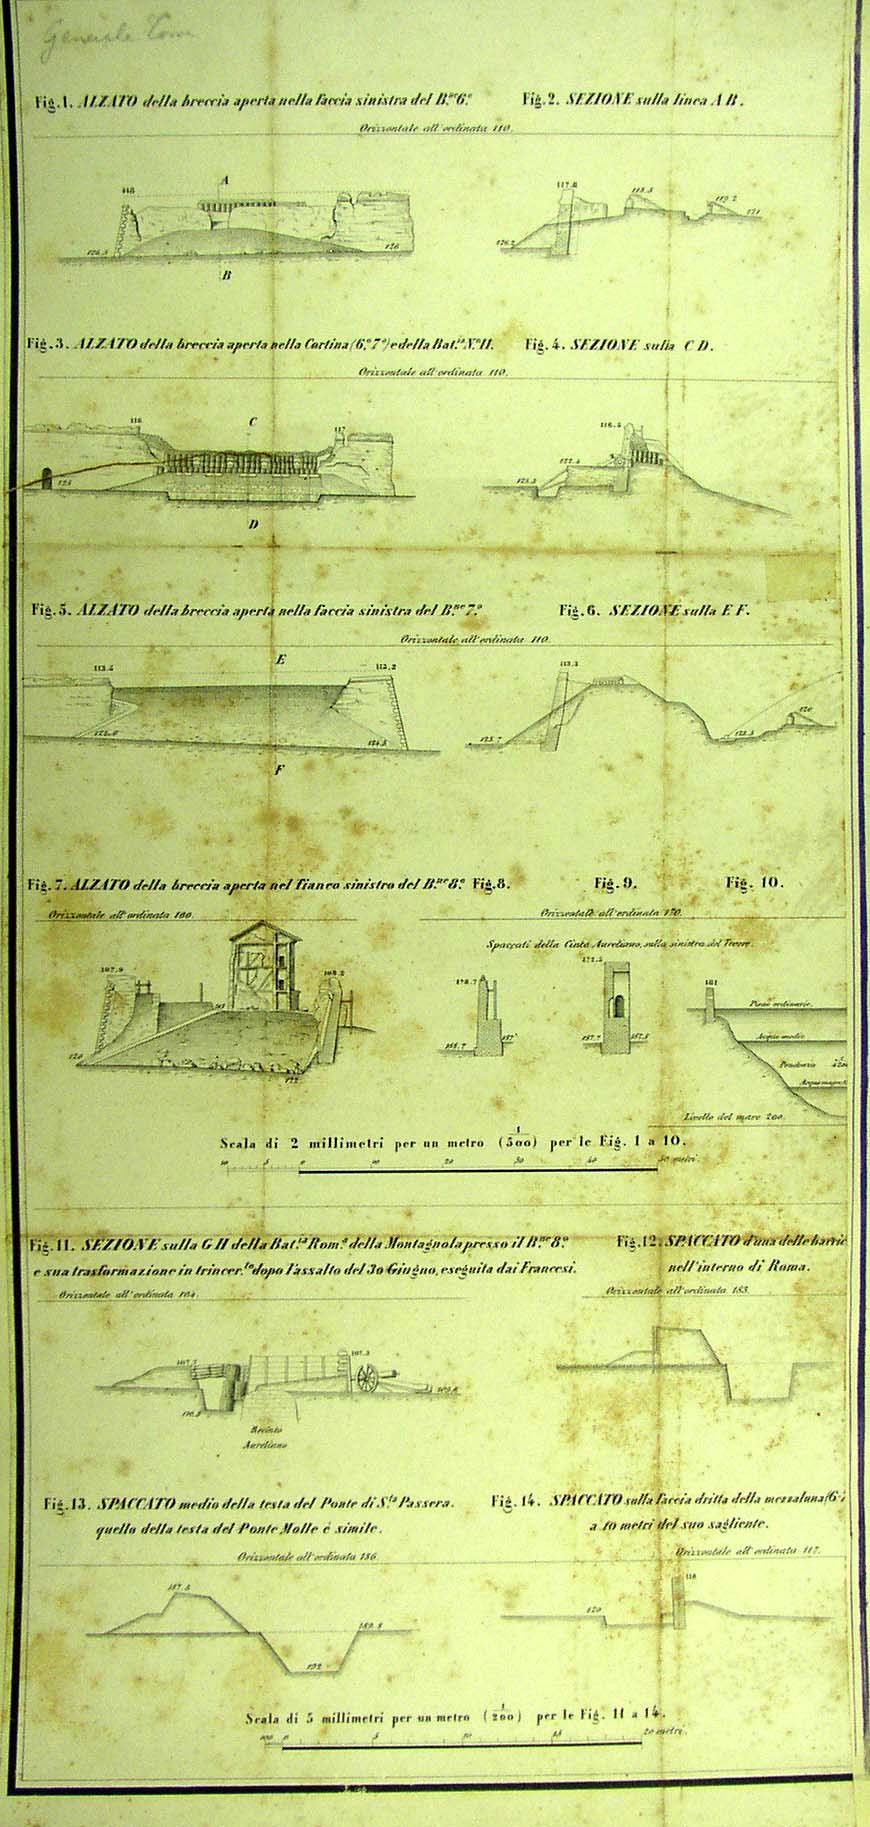 Generale
Fig. 1. ALZATO della breccia aperta nella faccia sinistra del B.ne 6.o
Fig. 2. SEZIONE sulla linea A B.
Orizzontale all'ordinata 110.
118
A
126.5
126
B
117.8
118.5
119.2
121
126.2
Fig. 3. ALZATO della breccia aperta nella Cortina (6.o 7.o) e della Bat.ia N.o 11.
Fig. 4. SEZIONE sulla C D.
Orizzontale all'ordinata 110.
116
C
117
125
D
116.5
122.5
125.3
Fig. 5. ALZATO della breccia aperta nella faccia sinistra del B.ne 7.o
Fig. 6. SEZIONE sulla E F.
Orizzontale all'ordinata 110.
113.5
E
113.2
124.5
F
113.3
120
125.7
123.5
Fig. 7. ALZATO della breccia aperta nel fianco sinistro del B.ne 8.o
Fig. 8.
Fig. 9.
Fig. 10.
Orizzontale all'ordinata 100.
Orizzontale all'ordinata 170.
Spaccati della Cinta Aureliana, sulla sinistra del Tevere.
107.9
108.2
120
122
178.7
187
172.5
187.7
187.5
181
Piene ordinarie.
Acque medie
Pendenza
Acque magre
Livello del mare 200.
Scala di 2 millimetri per un metro (1/500) per le Fig. 1 a 10.
10 5 0 10 20 30 40 50 metri.
Fig. 11. SEZIONE sulla G H della Bat.ia Rom.a della Montagnola presso il B.ne 8.o
e sua trasformazione in trincer.to dopo l'assalto del 30 Giugno, eseguita dai Francesi.
Orizzontale all'ordinata 104.
Fig. 12. SPACCATO d'una delle barric
nell'interno di Roma.
Orizzontale all'ordinata 183.
107.7
107.3
109.6
110.5
Recinto
Aureliano
Fig. 13. SPACCATO medio della testa del Ponte di S.ta Passera.
quello della testa del Ponte Molle è simile.
Orizzontale all'ordinata 186.
Fig. 14. SPACCATO sulla faccia dritta della mezzaluna (6
a 10 metri del suo sagliente.
Orizzontale all'ordinata 117.
187.5
189.8
192
118
120
Scala di 5 millimetri per un metro (1/200) per le Fig. 11 a 14.
0 5 10 15 20 metri.